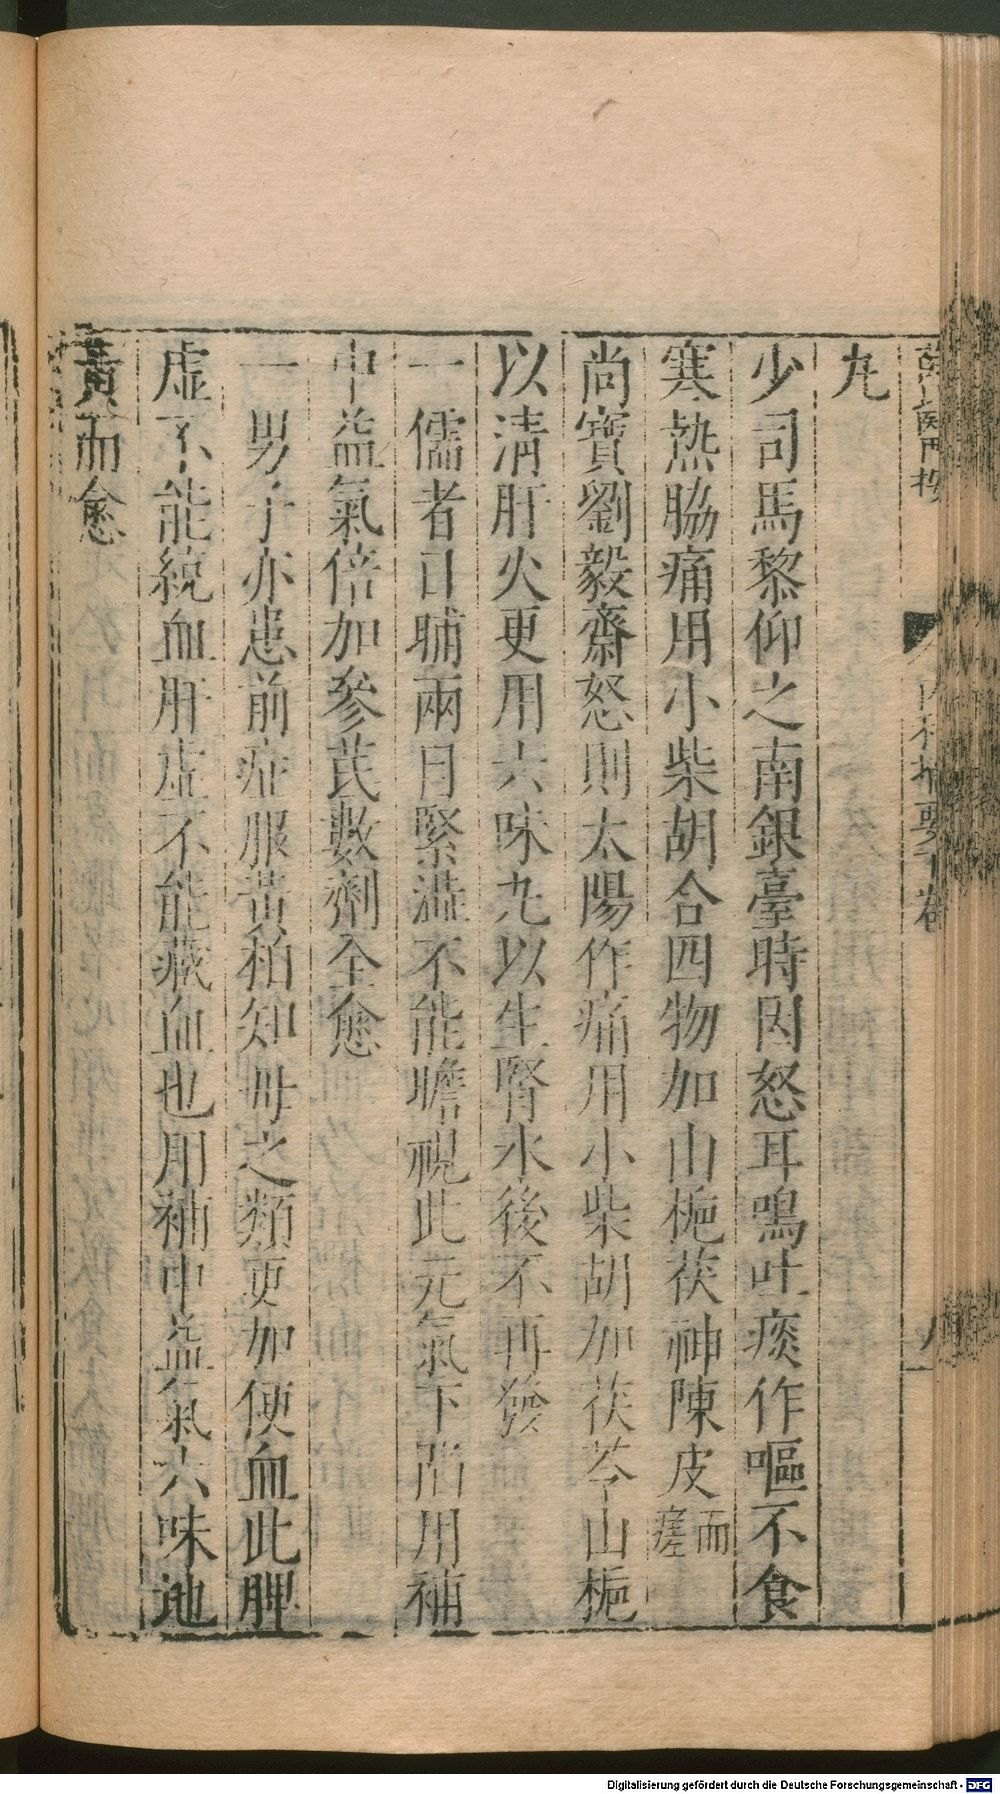 丸
少司馬黎仰之南銀臺時因怒耳鳴吐痰作嘔不食
寒熱脇痛用小柴胡合四物加山梔茯神陳皮而
瘥
尚寶劉毅齋怒則太陽作痛用小柴胡加茯苓山梔
以清肝火更用六味丸以生腎水後不再發
一儒者日晡兩目緊澁不能瞻視此元氣下陷用補
中益氣倍加參芪數劑全愈
一男子亦患前症服黃柏知母之類更加便血此脾
虛不能統血肝虛不能藏血也用補中益氣六味地
黃而愈
Digitalisierung gefördert durch die Deutsche Forschungsgemeinschaft - DFG